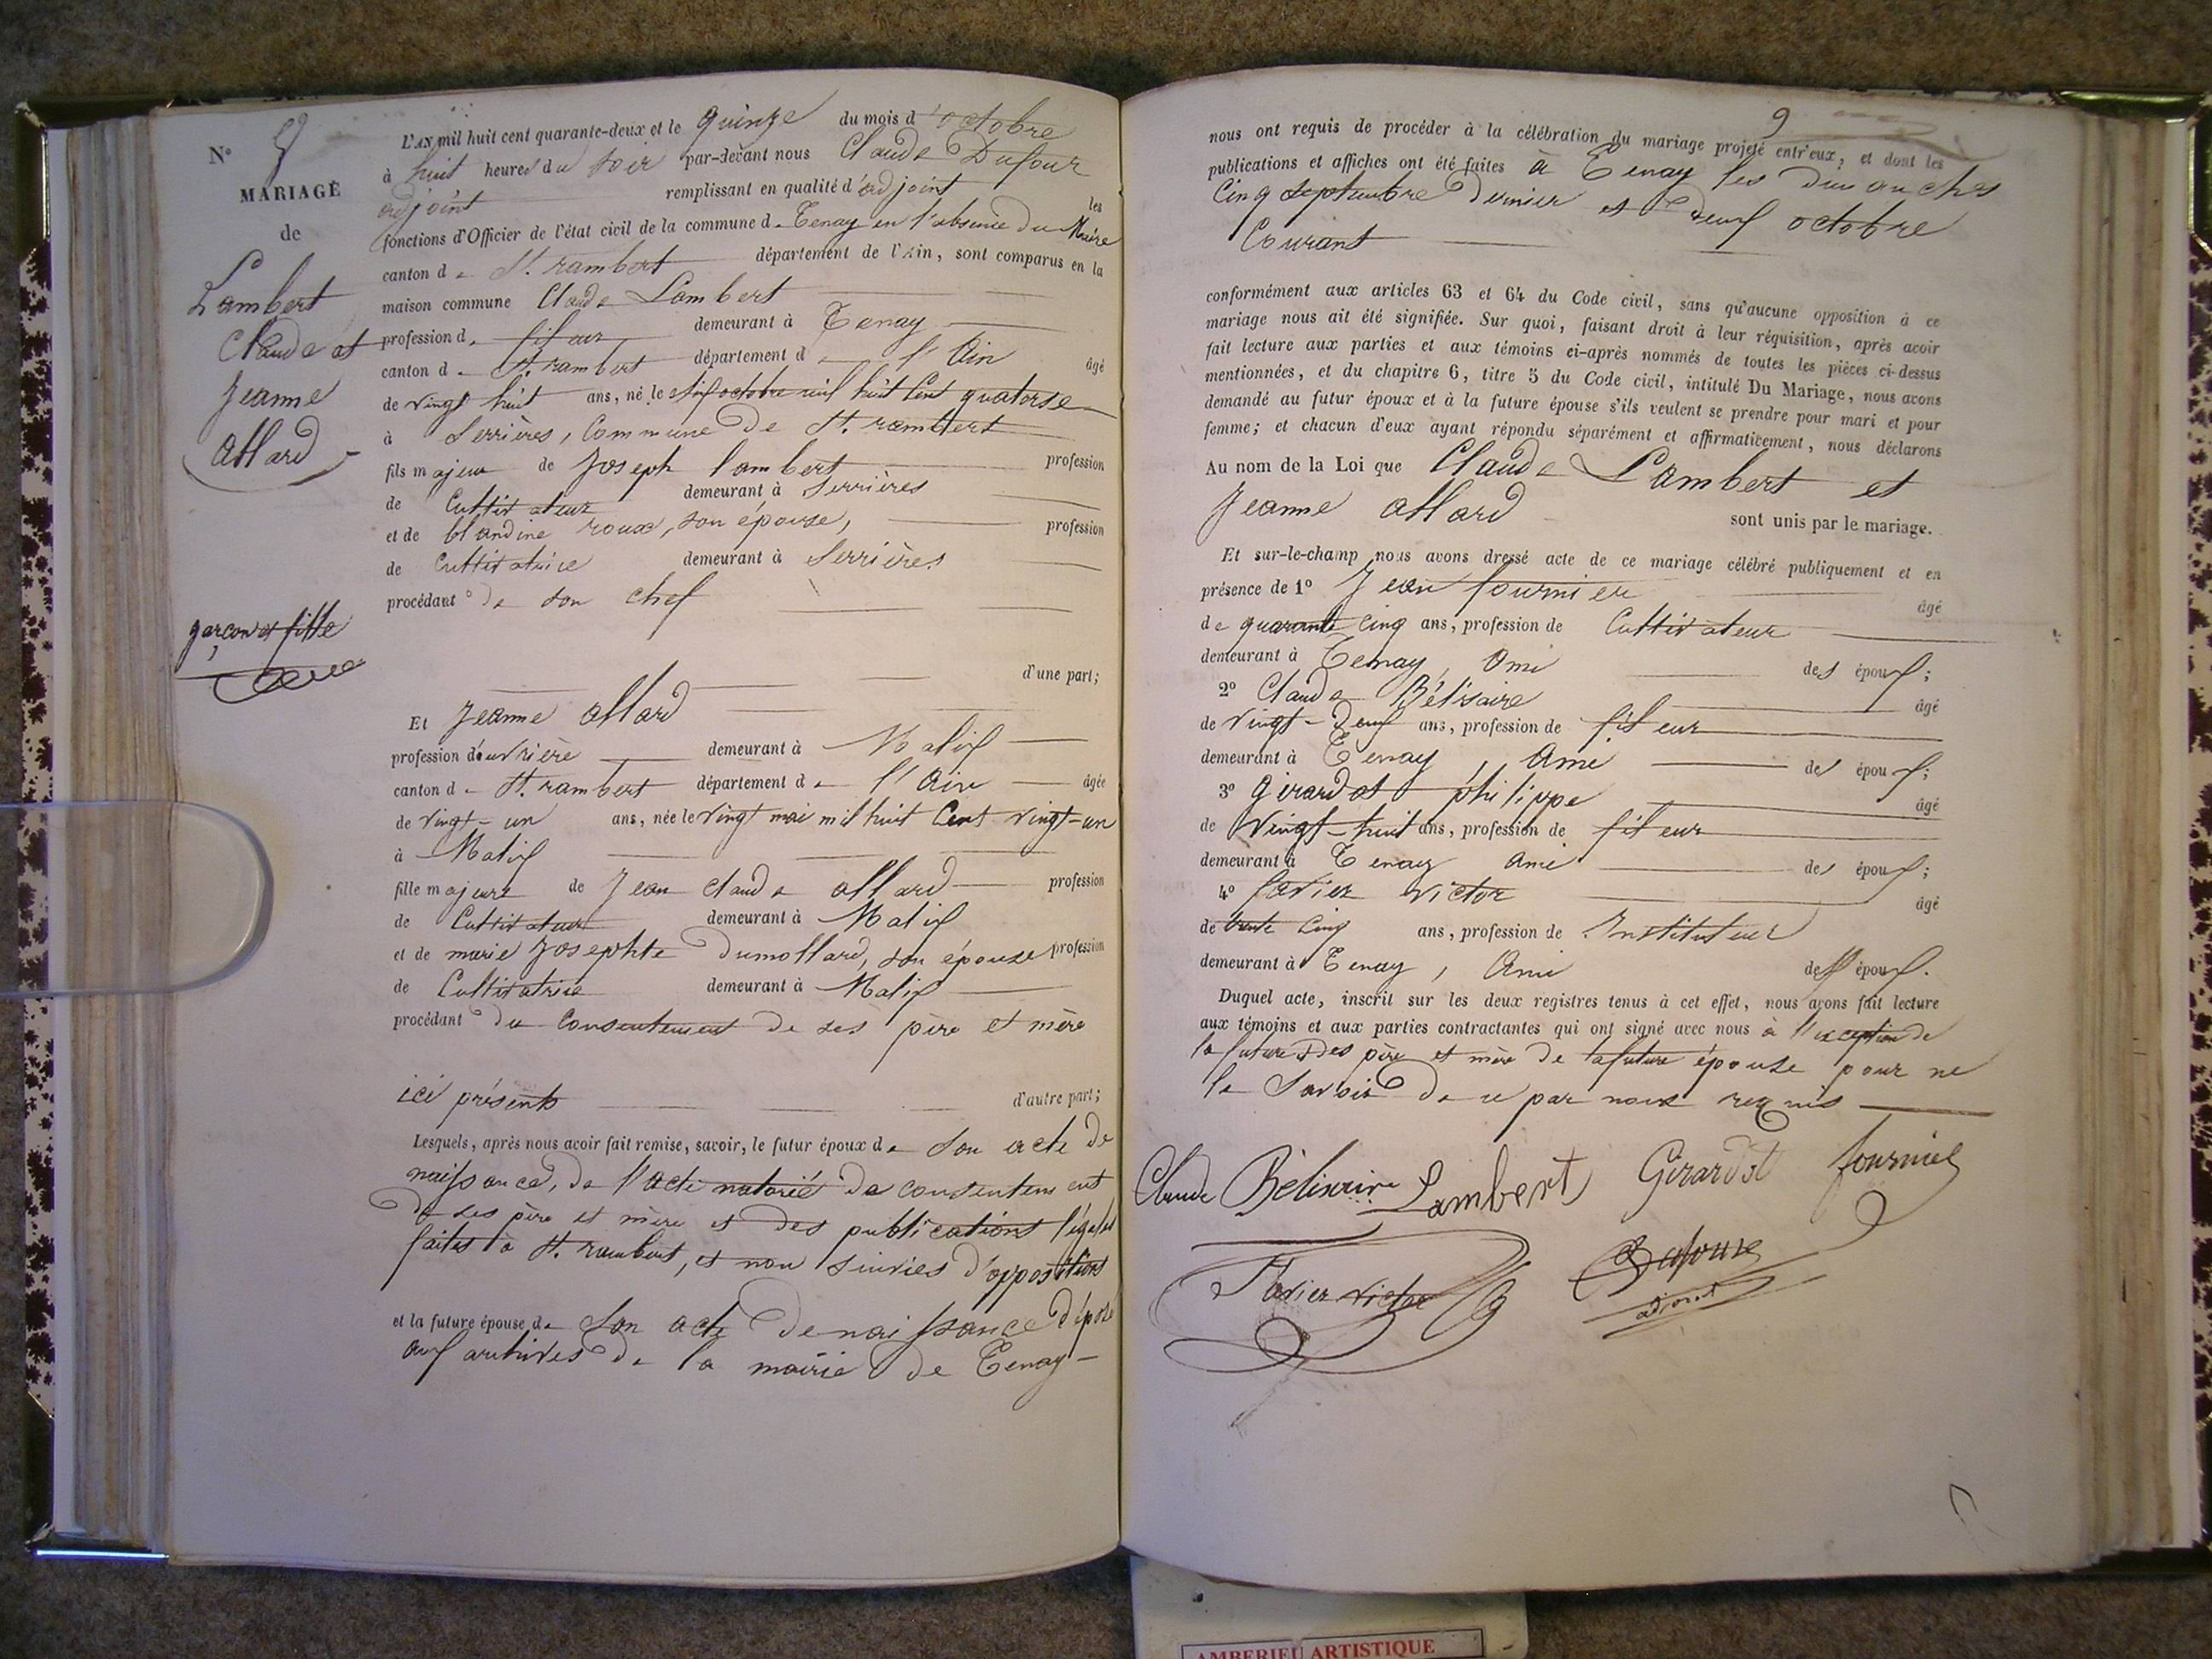 N°
MARIAGE
de
Lambert
Claude et
Jeanne
Allard
garçon et fille
L'AN mil huit cent quarante-deux et le quinze du mois d'octobre
à huit heures du soir par-devant nous Claude Dufour
adjoint remplissant en qualité d'adjoint les
fonctions d'Officier de l'état civil de la commune de Tenay en l'absence du Maire
canton de St. rambert département de l'Ain, sont comparus en la
maison commune Claude Lambert
profession de fileur demeurant à Tenay
canton de St. rambert département de l'Ain âgé
de vingt huit ans, né le octobre mil huit Cent quatorse
à Serrières, Commune de St. rambert
fils majeur de Joseph lambert profession
de Cultivateur demeurant à Serrières
et de blandine roux, son épouse, profession
de Cultivatrice demeurant à Serrières
procédant de son chef
d'une part;
Et Jeanne allard
profession d'ouvrière demeurant à Malix
canton de St. rambert département de l'Ain âgée
de vingt-un ans, née le vingt mai mil huit Cent vingt-un
à Malix
fille majeure de Jean claude allard profession
de Cultivateur demeurant à Malix
et de marie Josephte Dumollard, son épouse profession
de Cultivatrice demeurant à Malix
procédant du Consentement de ses père et mère
ici présents d'autre part;
Lesquels, après nous avoir fait remise, savoir, le futur époux de son acte de
naissance, de l'acte notarié de consentement
de ses père et mère et des publications légales
faites à St. rambert, et non suivies d'oppositions
et la future épouse de son acte de naissance déposé
aux archives de la mairie de Tenay
9
nous ont requis de procéder à la célébration du mariage projeté entr'eux, et dont les
publications et affiches ont été faites à Tenay les dimanches
Cinq septembre dernier et neuf octobre
Courant
conformément aux articles 63 et 64 du Code civil, sans qu'aucune opposition à ce
mariage nous ait été signifiée. Sur quoi, faisant droit à leur réquisition, après avoir
fait lecture aux parties et aux témoins ci-après nommés de toutes les pièces ci-dessus
mentionnées, et du chapitre 6, titre 5 du Code civil, intitulé Du Mariage, nous avons
demandé au futur époux et à la future épouse s'ils veulent se prendre pour mari et pour
femme; et chacun d'eux ayant répondu séparément et affirmativement, nous déclarons
Au nom de la Loi que Claude Lambert et
Jeanne allard sont unis par le mariage.
Et sur-le-champ nous avons dressé acte de ce mariage célébré publiquement et en
présence de 1° Jean fournier âgé
de quarante cinq ans, profession de Cultivateur
demeurant à Tenay, Ami des époux;
2° Claude Bélisaire âgé
de vingt-neuf ans, profession de fileur
demeurant à Tenay, Ami des époux;
3° Girardot philippe âgé
de Vingt-huit ans, profession de fileur
demeurant à Tenay Ami des époux;
4° favier victor âgé
de trente cinq ans, profession de Instituteur
demeurant à Tenay, Ami des époux.
Duquel acte, inscrit sur les deux registres tenus à cet effet, nous avons fait lecture
aux témoins et aux parties contractantes qui ont signé avec nous à l'exception de
la future et des père et mère de la future épouse pour ne
le Savoir de ce par nous requis
Claude Bélisaire Lambert Girardot fournier
Favier victor Dufour
adjoint
AMBERIEU ARTISTIQUE